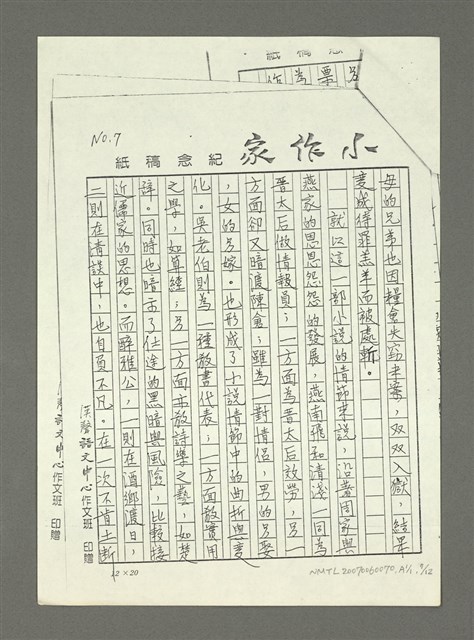 念稿紙
作為票另
No.7
小作家 紀念稿紙
母的兄弟也因糧倉失竊未察，双双入獄，結果
變成待罪羔羊而被處斬。
就以這一部小說的情節來說，沿著周家與
燕家的恩恩怨怨的發展，燕南飛和清淺一同為
晋太后做情報員；一方面為晋太后效勞，另一
方面卻又暗渡陳倉；雖為一對情侶，男的另娶
，女的另嫁。也形成了小說情節中的曲折與變
化。吳老伯則為一種教書代表；一方面教實用
之學，如算經；另一方面亦教詩學之藝，如楚
辭。同時也暗示了仕途的黑暗與風險，比較接
近儒家的思想。而薛雅公，一則在酒鄉渡日，
二則在清談中，也自負不凡。在一次不肯上斷
漢聲語文中心作文班 印贈
語文中心作文班 印贈
12×20
NMTL20070060070.A1/1.9/12